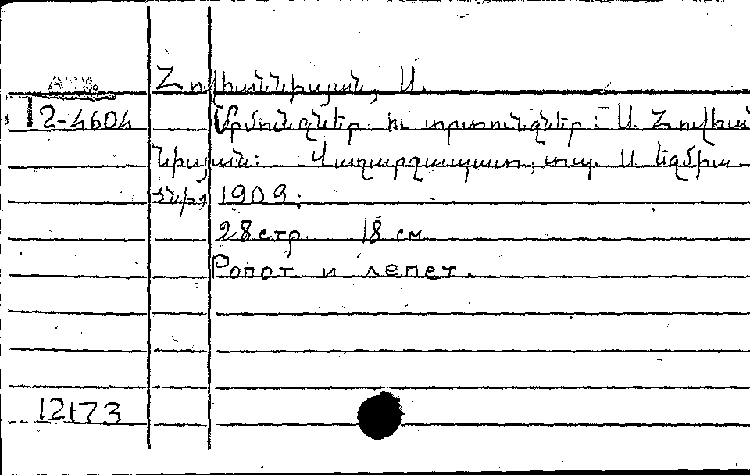 Հովհաննիսյան, Ա.
12-4604
Մրմունջներ ու տրտունջներ: Ա. Հովհան
նիսյան: Վաղարշապատ, տպ. Ս. Էջմիա
ծնի, 1909:
28 стр. 18 см.
Ропот и лепет.
12173